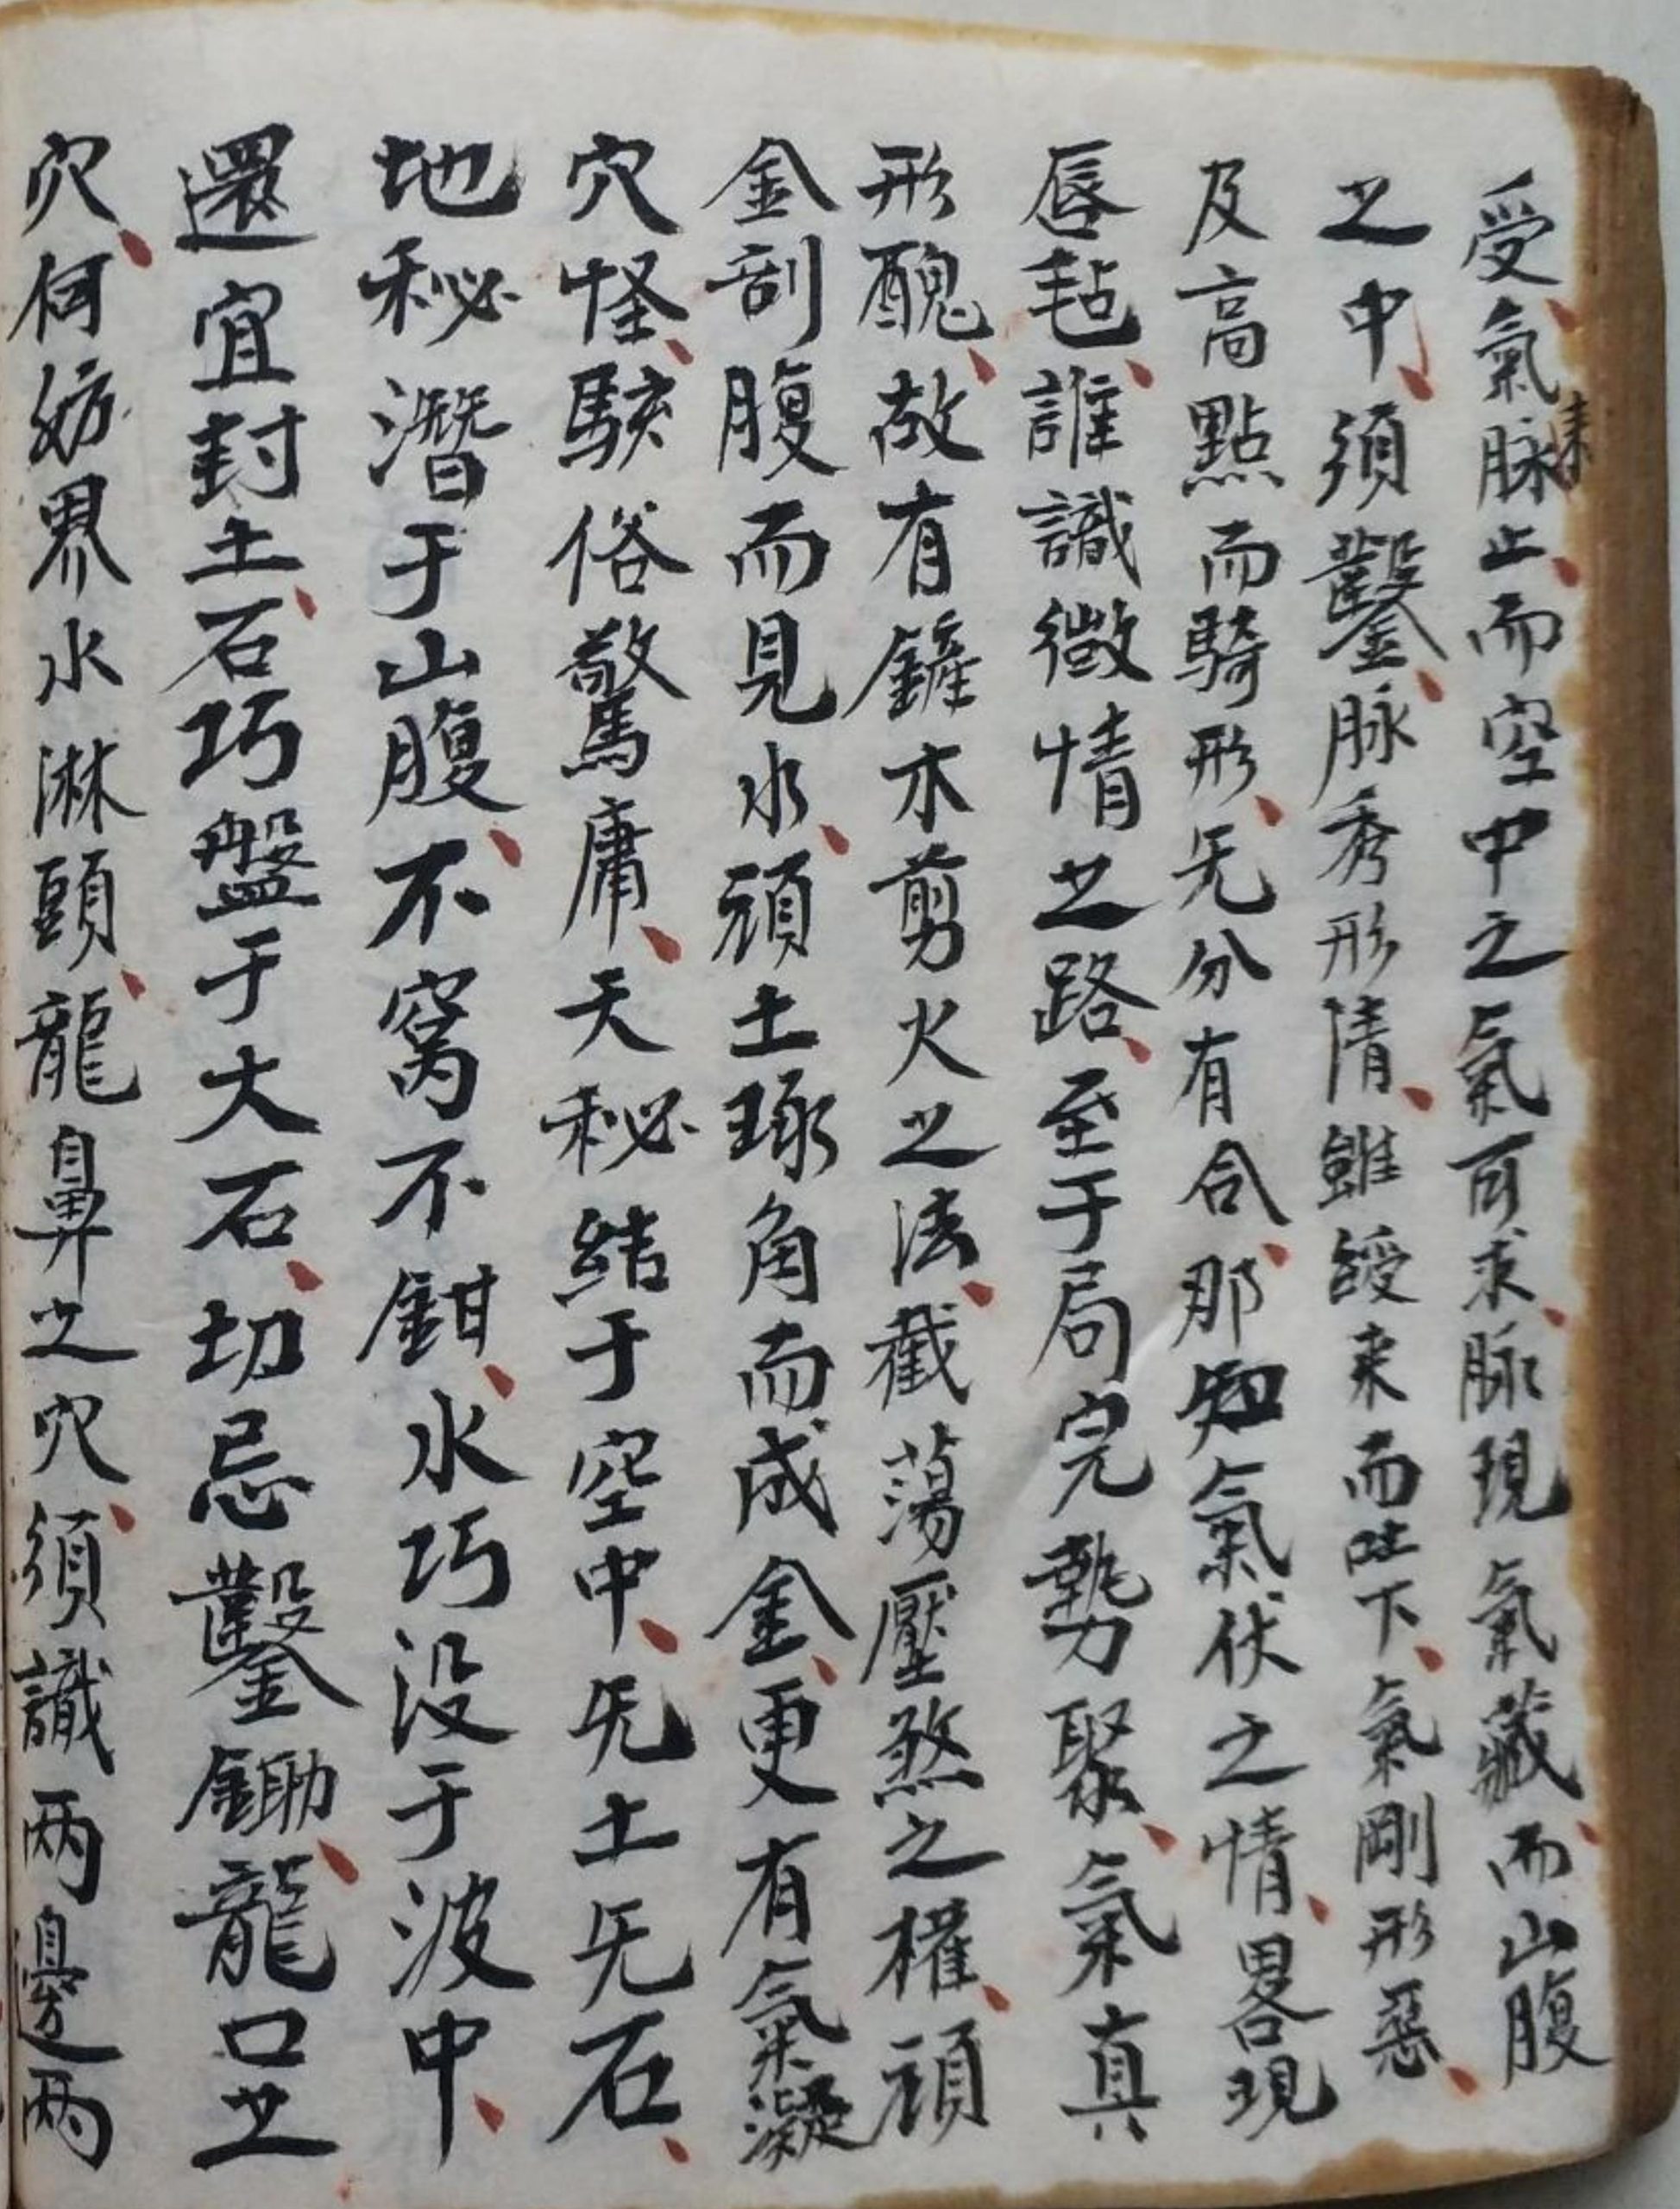 受氣脉未止而空中之氣可求脉現氣藏而山腹
之中須鑿脉秀形情雖綬来而吐下氣剛形惡
及高點而騎形旡分有合那知氣伏之情畧現
唇毡誰識微情之路至于局完勢聚氣真
形醜故有鏟木剪火之法截蕩壓煞之權頑
金剖腹而見水頑土琢角而成金更有氣凝
穴怪駭俗驚庸天秘結于空中旡土旡石
地秘潛于山腹不窩不鉗水巧没于波中
還宜封土石巧盤于大石切忌鑿鋤龍口之
穴何妨界水淋頭龍鼻之穴須識两邊两